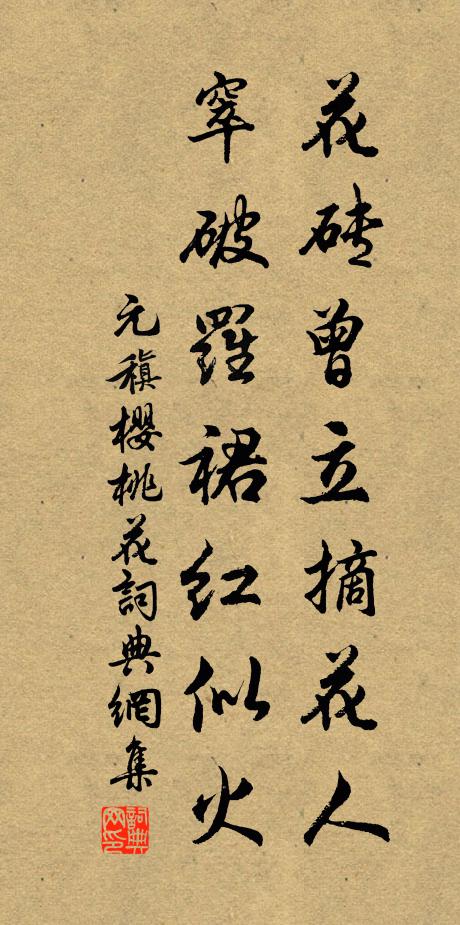 花砖曾立摘花人
窣破羅裙红似火
元稹櫻桃花詞典網集
詞典网印